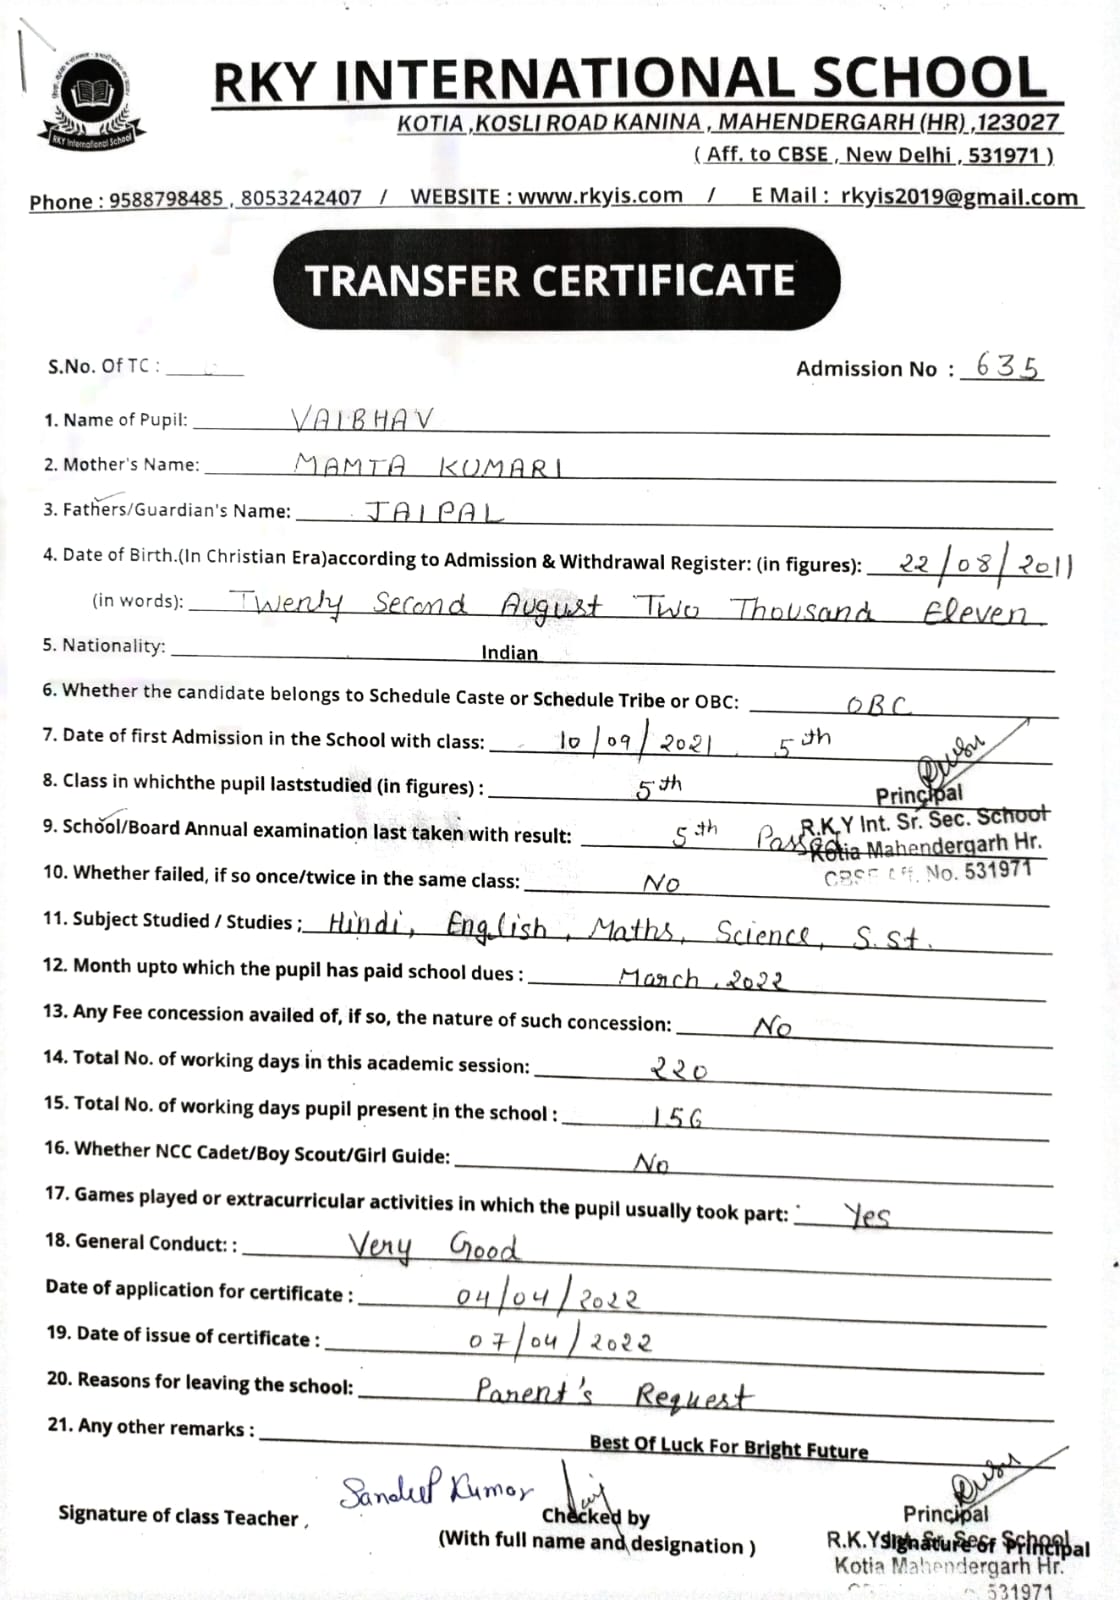 RKY International School
RKY INTERNATIONAL SCHOOL
KOTIA ,KOSLI ROAD KANINA , MAHENDERGARH (HR) ,123027
( Aff. to CBSE , New Delhi , 531971 )
Phone : 9588798485 , 8053242407 / WEBSITE : www.rkyis.com / E Mail : rkyis2019@gmail.com
TRANSFER CERTIFICATE
S.No. Of TC : Admission No : 635
1. Name of Pupil: VAIBHAV
2. Mother's Name: MAMTA KUMARI
3. Fathers/Guardian's Name: JAIPAL
4. Date of Birth.(In Christian Era)according to Admission & Withdrawal Register: (in figures): 22/08/2011
(in words): Twenty Second August Two Thousand Eleven
5. Nationality: Indian
6. Whether the candidate belongs to Schedule Caste or Schedule Tribe or OBC: OBC
7. Date of first Admission in the School with class: 10/09/2021, 5th
8. Class in whichthe pupil laststudied (in figures) : 5th
Principal
9. School/Board Annual examination last taken with result: 5th Passed
R.K.Y Int. Sr. Sec. School
Kotia Mahendergarh Hr.
CBSE Aff. No. 531971
10. Whether failed, if so once/twice in the same class: No
11. Subject Studied / Studies ; Hindi, English, Maths, Science, S.St.
12. Month upto which the pupil has paid school dues : March, 2022
13. Any Fee concession availed of, if so, the nature of such concession: No
14. Total No. of working days in this academic session: 220
15. Total No. of working days pupil present in the school : 156
16. Whether NCC Cadet/Boy Scout/Girl Guide: No
17. Games played or extracurricular activities in which the pupil usually took part: Yes
18. General Conduct: : Very Good
Date of application for certificate : 04/04/2022
19. Date of issue of certificate : 07/04/2022
20. Reasons for leaving the school: Parent's Request
21. Any other remarks : Best Of Luck For Bright Future
Sandeep Kumar
Signature of class Teacher , Checked by Principal
(With full name and designation ) R.K.Y Int. Sr. Sec. School
Signature of Principal
Kotia Mahendergarh Hr.
531971